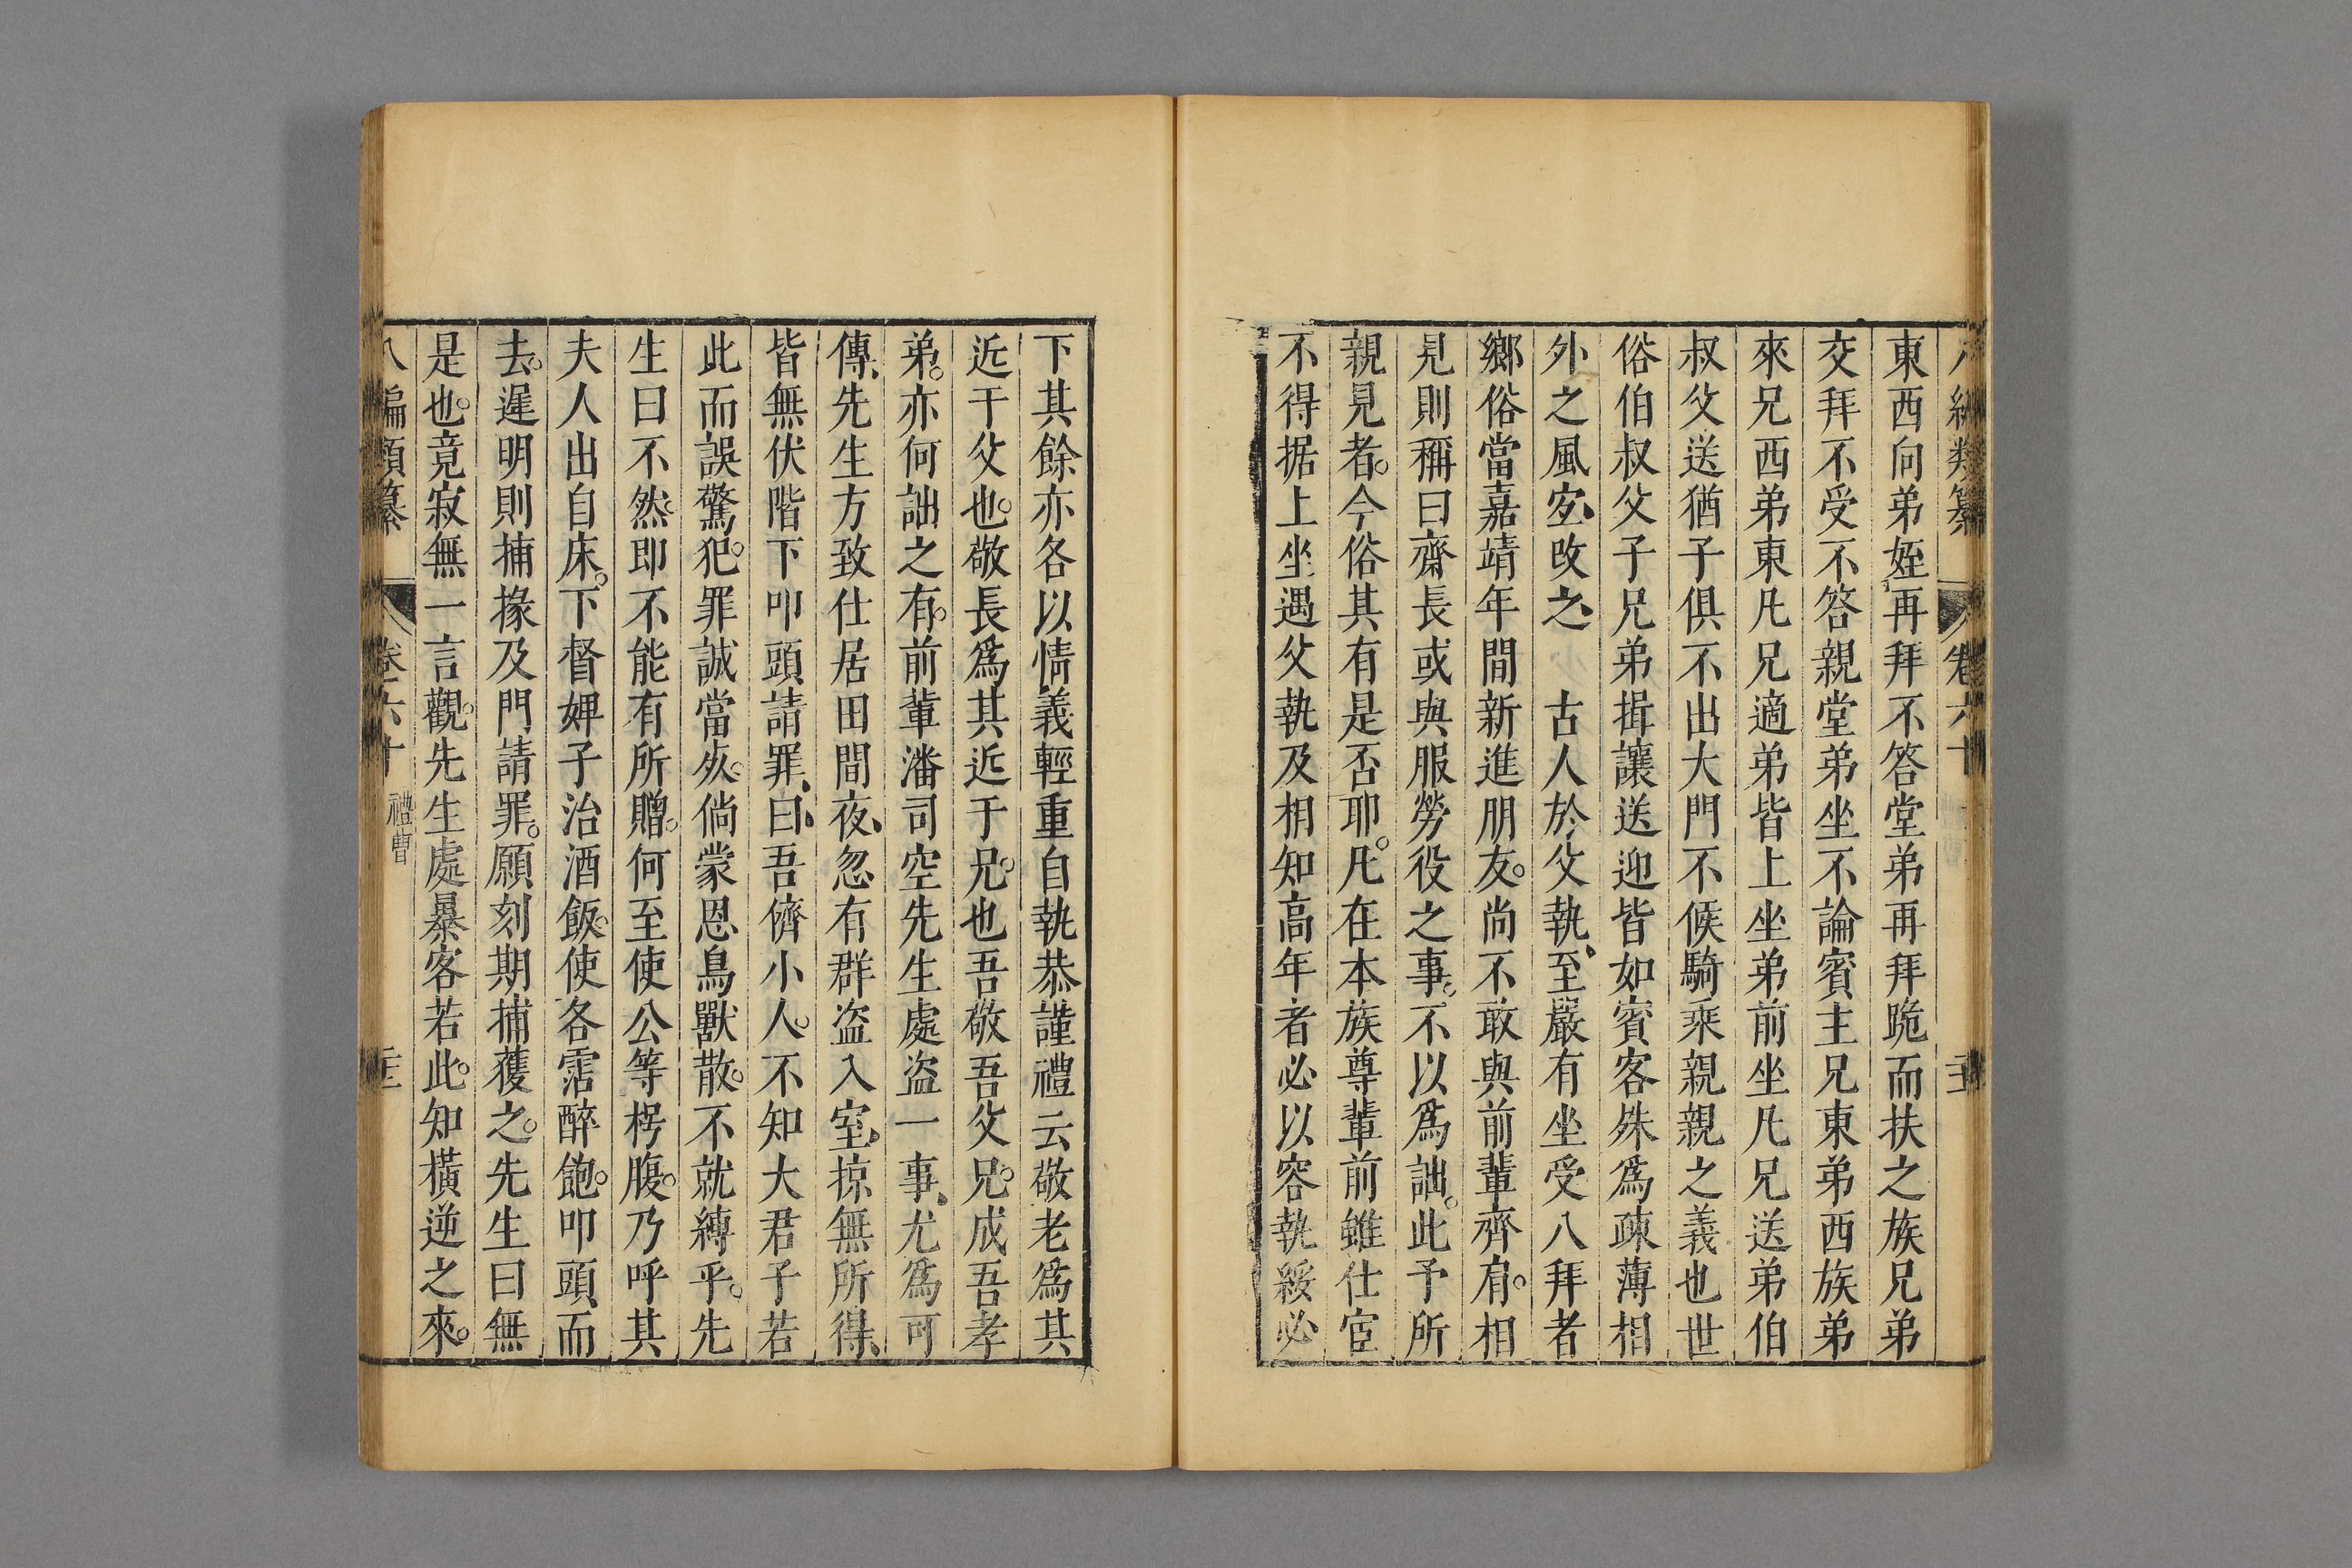 八編類纂 卷六十
東西向弟姪再拜不答堂弟再拜跪而扶之族兄弟
交拜不受不答親堂弟坐不論賓主兄東弟西族弟
來兄西弟東凡兄適弟皆上坐弟前坐凡兄送弟伯
叔父送猶子俱不出大門不候騎乘親親之義也世
俗伯叔父子兄弟揖讓送迎皆如賓客殊爲疎薄相
外之風宜改之 古人於父執至嚴有坐受八拜者
鄉俗當嘉靖年間新進朋友尚不敢與前輩齊肩相
見則稱曰齋長或與服勞役之事不以爲詘此予所
親見者今俗其有是否耶凡在本族尊輩前雖仕宦
不得据上坐遇父執及相知高年者必以容執綏必
下其餘亦各以情義輕重自執恭謹禮云敬老爲其
近于父也敬長爲其近于兄也吾敬吾父兄成吾孝
弟亦何詘之有前輩潘司空先生處盜一事尤爲可
傳先生方致仕居田間夜忽有群盜入室掠無所得
皆無伏階下叩頭請罪曰吾儕小人不知大君子若
此而誤驚犯罪誠當死倘蒙恩鳥獸散不就縛乎先
生曰不然即不能有所贈何至使公等枵腹乃呼其
夫人出自床下督婢子治酒飯使各霑醉飽叩頭而
去遲明則捕掾及門請罪願刻期捕獲之先生曰無
是也竟寂無一言觀先生處暴客若此知橫逆之來
八編類纂 卷六十 禮曹